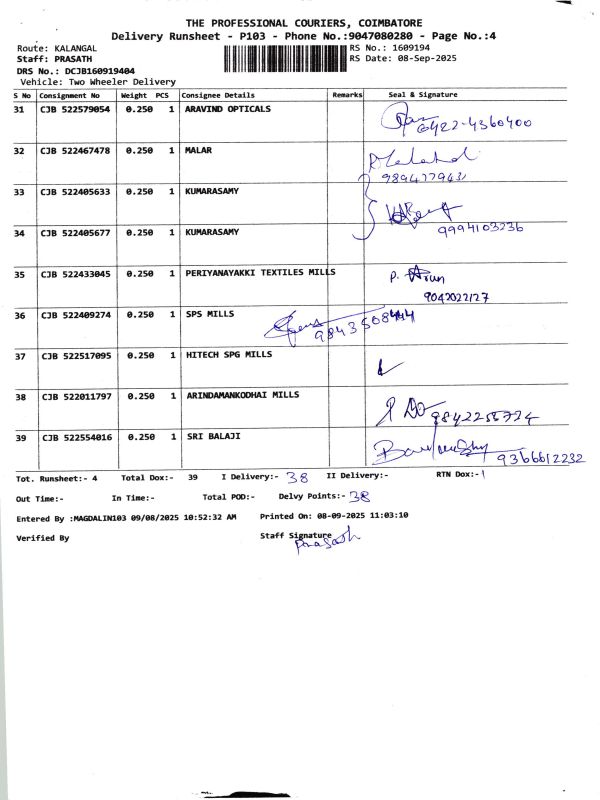 THE PROFESSIONAL COURIERS, COIMBATORE
Delivery Runsheet - P103 - Phone No.:9047080280 - Page No.:4
Route: KALANGAL RS No.: 1609194
Staff: PRASATH RS Date: 08-Sep-2025
DRS No.: DCJB160919404
Vehicle: Two Wheeler Delivery
S No Consignment No Weight PCS Consignee Details Remarks Seal & Signature
31 CJB 522579054 0.250 1 ARAVIND OPTICALS
0422-4360400
32 CJB 522467478 0.250 1 MALAR
9894779431
33 CJB 522405633 0.250 1 KUMARASAMY
34 CJB 522405677 0.250 1 KUMARASAMY
9994103236
35 CJB 522433045 0.250 1 PERIYANAYAKKI TEXTILES MILLS P. Arun
9042022127
36 CJB 522409274 0.250 1 SPS MILLS
9843508444
37 CJB 522517095 0.250 1 HITECH SPG MILLS
38 CJB 522011797 0.250 1 ARINDAMANKODHAI MILLS
9842256734
39 CJB 522554016 0.250 1 SRI BALAJI
9366612232
Tot. Runsheet:- 4 Total Dox:- 39 I Delivery:- 38 II Delivery:- RTN Dox:- 1
Out Time:- In Time:- Total POD:- Delvy Points:- 38
Entered By :MAGDALIN103 09/08/2025 10:52:32 AM Printed On: 08-09-2025 11:03:10
Verified By Staff Signature
Prasath